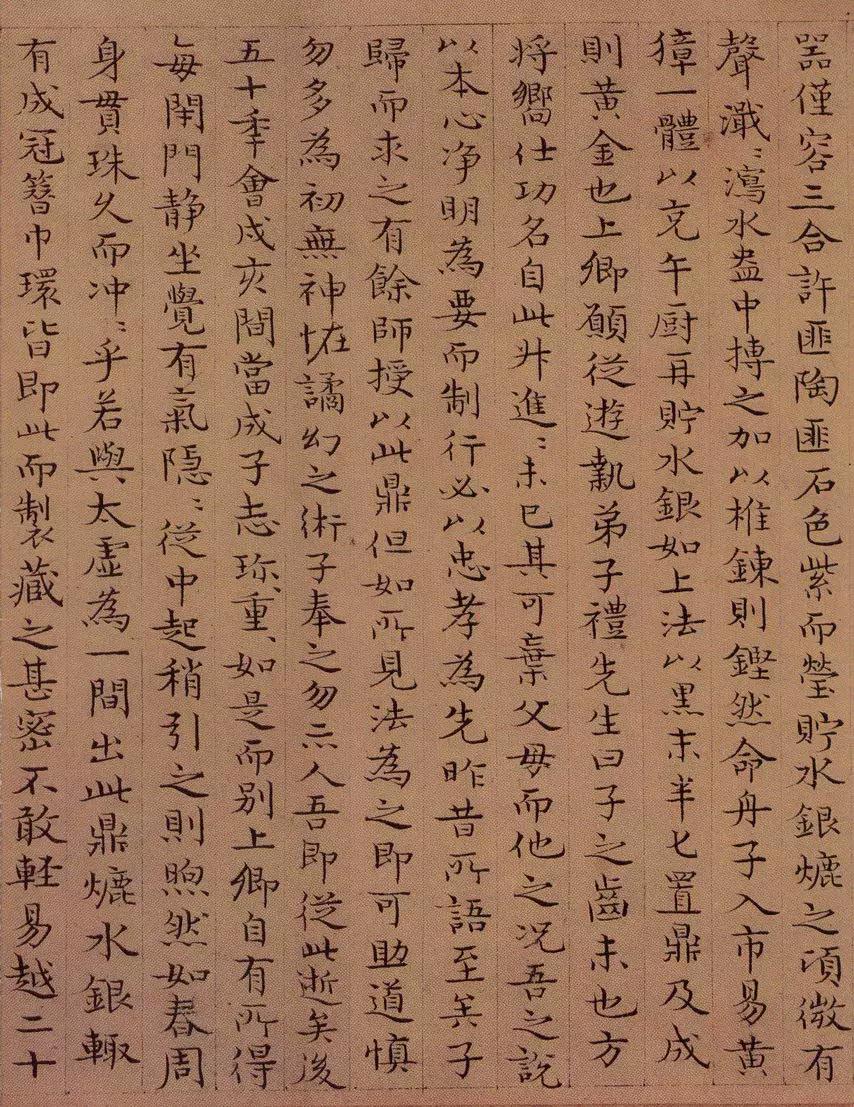 器僅容三合許匪陶匪石色紫而瑩貯水銀熝之頃微有
聲瀐〻瀉水盎中摶之加以椎鍊則鏗然命舟子入市易黃
獐一體以充午厨再貯水銀如上法以黑末半匕置鼎及成
則黃金也上卿願從遊執弟子禮先生曰子之齒未也方
將嚮仕功名自此升進〻未已其可棄父母而他之况吾之說
以本心净明為要而制行必以忠孝為先昨昔所語至矣子
歸而求之有餘師授以此鼎但如所見法為之即可助道慎
勿多為初無神恠譎幻之術子奉之勿示人吾即從此逝矣後
五十季會戌亥間當成子志珎〻重〻如是而别上卿自有所得
每閑門静坐覺有氣隱〻從中起稍引之則煦然如春周
身貫珠久而冲〻乎若與太虛為一間出此鼎熝水銀輙
有成冠簪巾環皆即此而製藏之甚密不敢軽易越二十